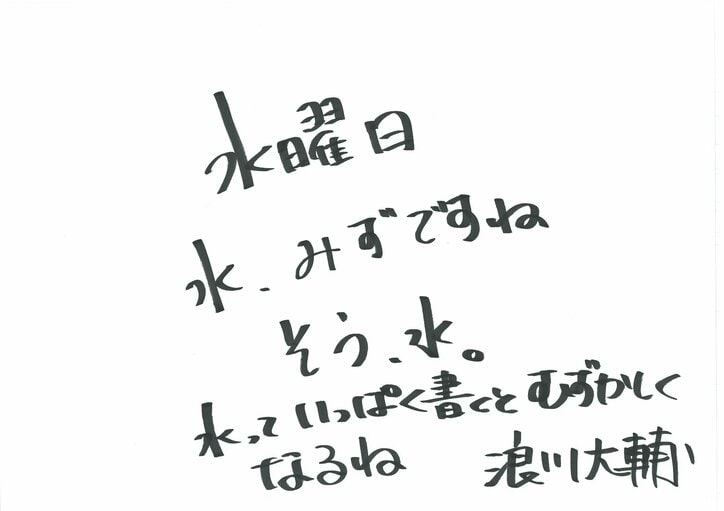 水曜日
水、みずですね
そう、水。
水っていっぱく書くとむずかしく
なるね
浪川大輔